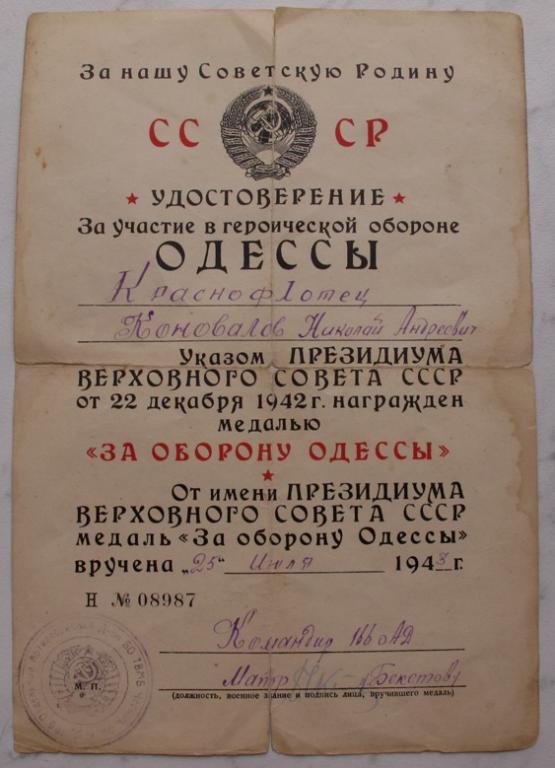 За нашу Советскую Родину
СССР
УДОСТОВЕРЕНИЕ
За Участие в героической обороне
ОДЕССЫ
Краснофлотец
Коновалов Николай Андреевич
Указом ПРЕЗИДИУМА
ВЕРХОВНОГО СОВЕТА СССР
от 22 декабря 1942 г. награжден
медалью
«ЗА ОБОРОНУ ОДЕССЫ»
От имени ПРЕЗИДИУМА
ВЕРХОВНОГО СОВЕТА СССР
медаль «За оборону Одессы»
вручена „25" Июля 1943 г.
Н № 08987
Командир 166 оАД
Майор
М. П.
(должность, военное звание и подпись лица, вручившего медаль)